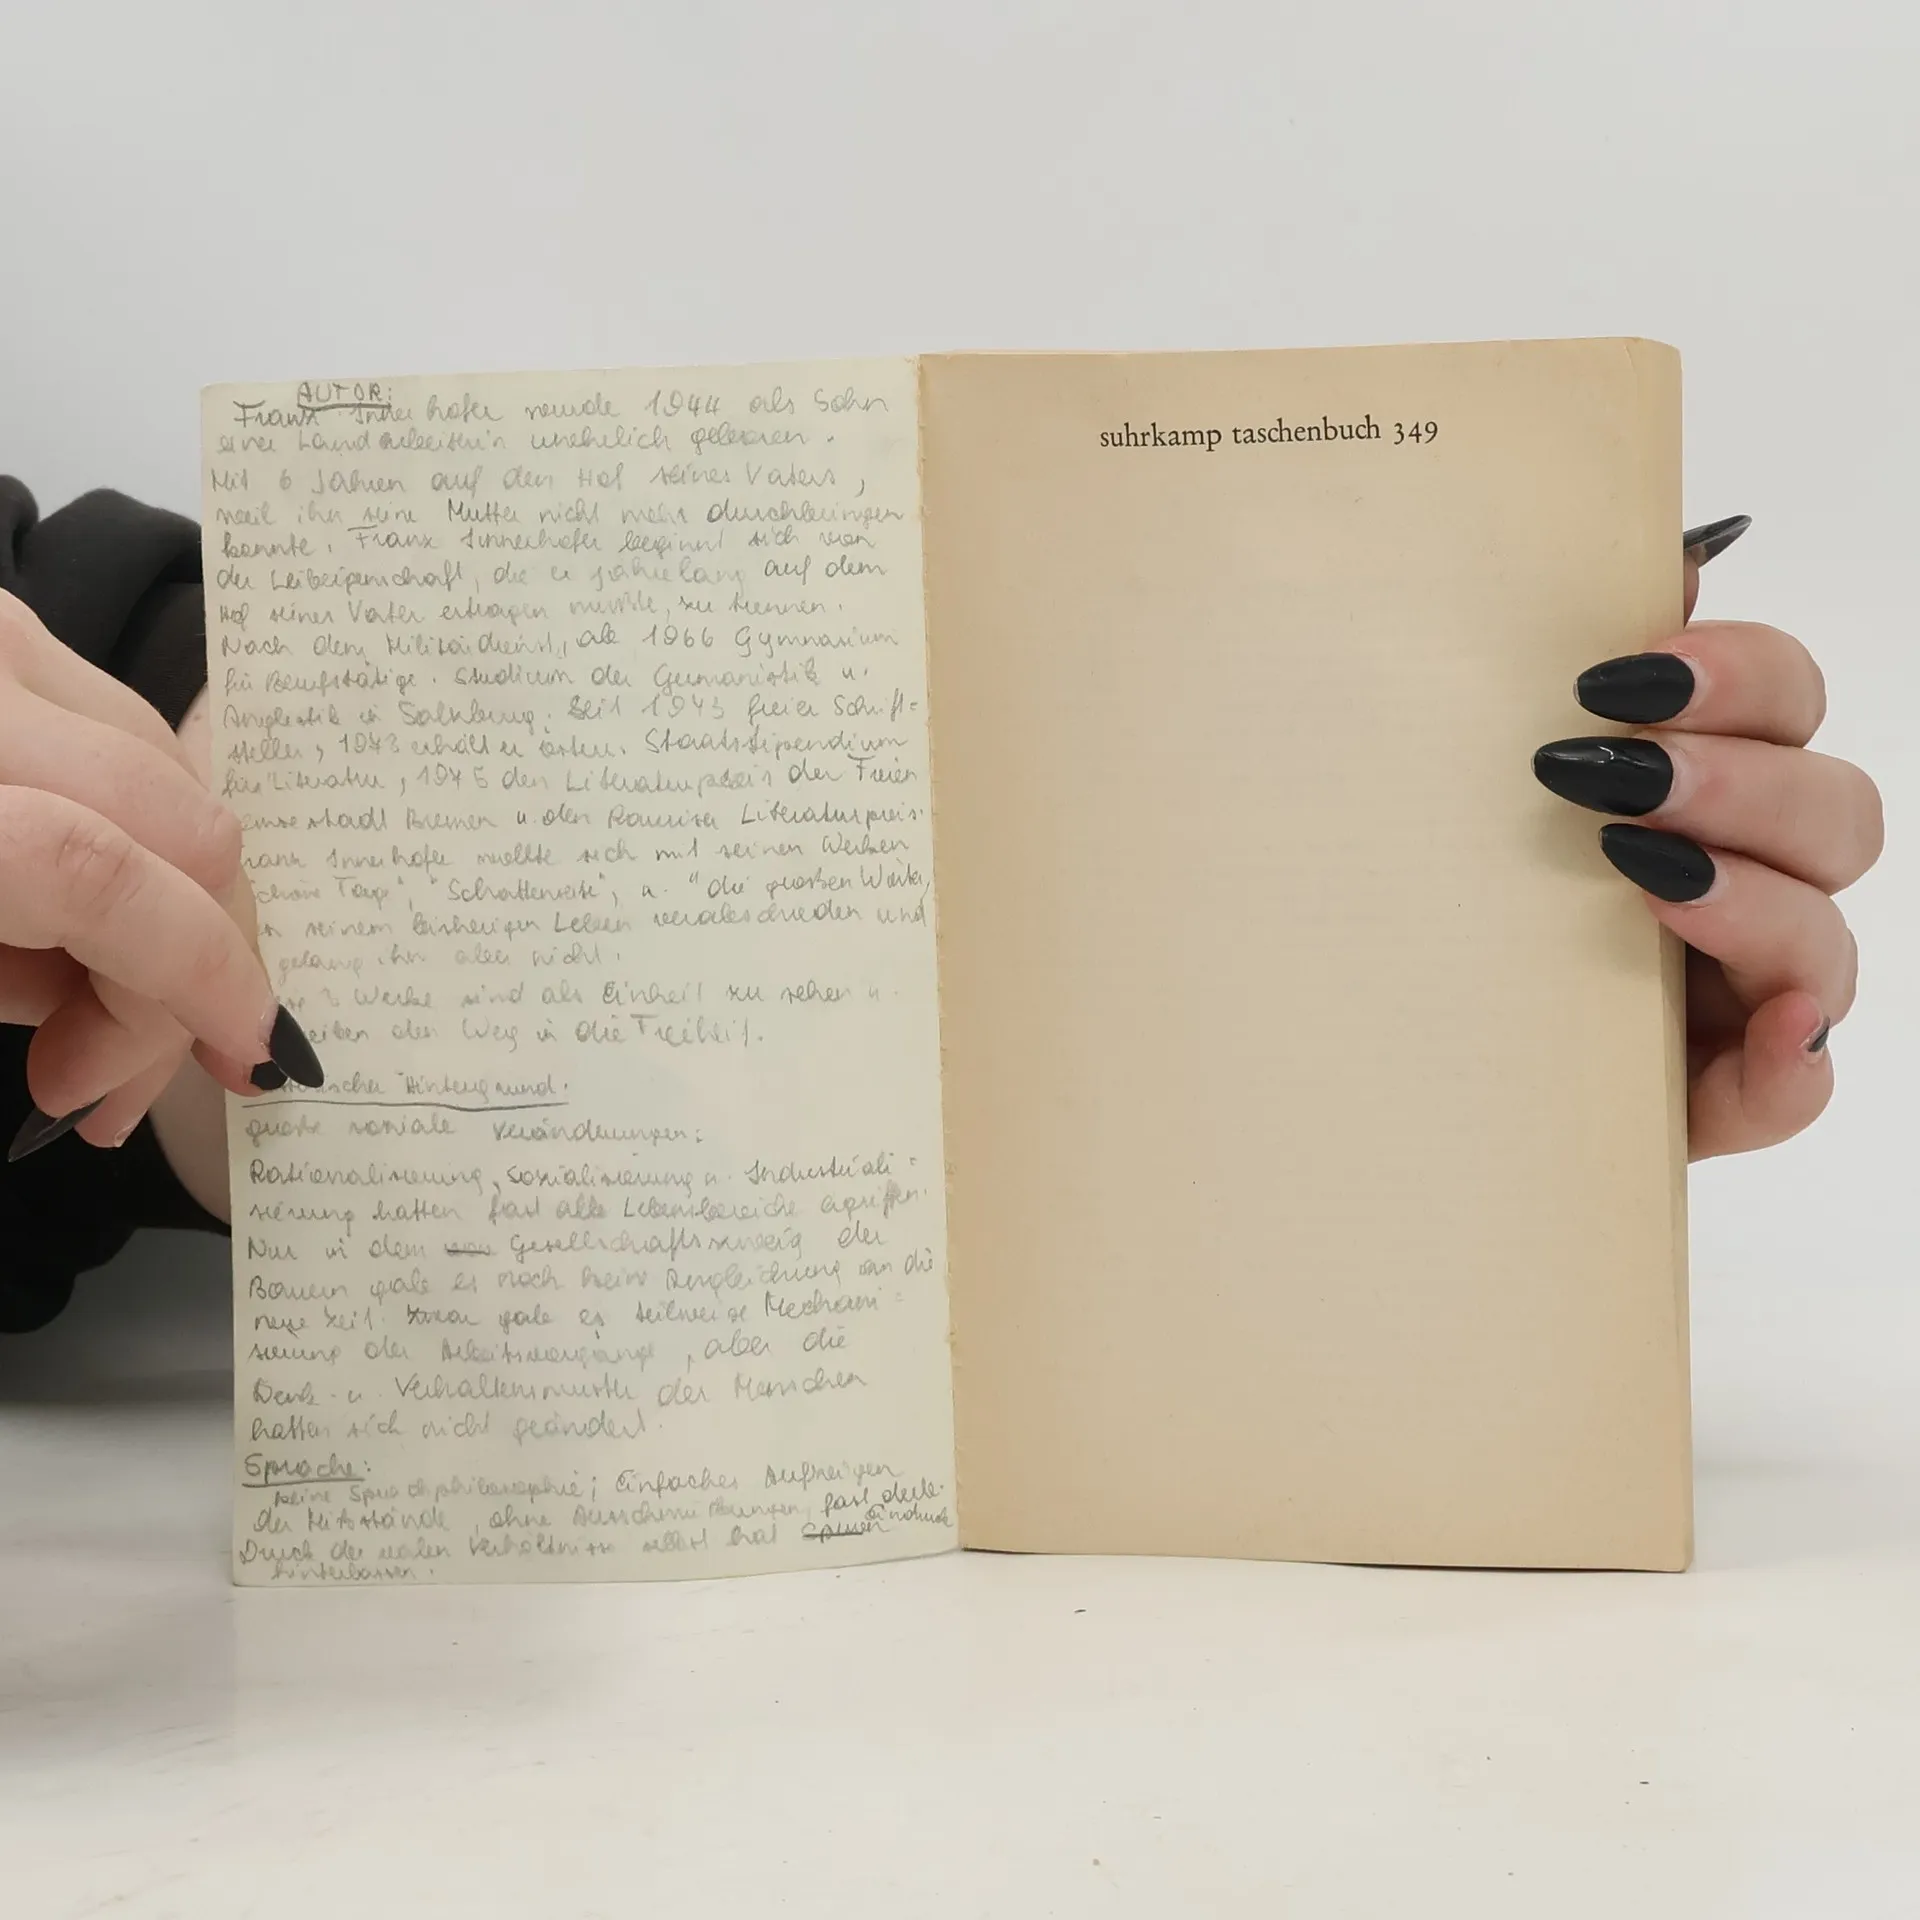 AUTOR:
Franz Innerhofer wurde 1944 als Sohn
einer Landarbeiterin unehelich geboren.
Mit 6 Jahren auf den Hof seines Vaters,
weil ihn seine Mutter nicht mehr durchbringen
konnte. Franz Innerhofer beginnt sich von
der Leibeigenschaft, die er jahrelang auf dem
Hof seines Vater ertragen mußte, zu trennen.
Nach dem Militärdienst, ab 1966 Gymnasium
für Berufstätige. Studium der Germanistik u.
Anglistik in Salzburg. Seit 1973 freier Schrift=
steller, 1973 erhält er österr. Staatsstipendium
für Literatur, 1975 den Literaturpreis der Freien
stadt Bremen u. den Rauriser Literaturpreis.
Franz Innerhofer wollte sich mit seinen Werken
Schöne Tage", "Schattseite", u. "die großen Wörter,
seinem bisherigen Leben verabschieden und
gelang ihm aber nicht.
3 Werke sind als Einheit zu sehen u.
den Weg in die Freiheit.
Hintergrund:
große soziale Veränderungen:
Rationalisierung, Sozialisierung u. Industriali=
sierung hatten fast alle Lebensbereiche ergriffen.
Nur in dem Gesellschaftszweig der
Bauern gab es noch keine Angleichung an die
neue Zeit. Zwar gab es teilweise Mechani=
sierung der Arbeitsvorgänge, aber die
Denk- u. Verhaltensmuster der Menschen
hatten sich nicht geändert.
Sprache:
keine Sprachphilosophie; Einfaches Aufzeigen
der Mißstände, ohne Ausschmückungen, fast
Druck der realen Verhältnisse selbst hat Eindruck
hinterlassen.
suhrkamp taschenbuch 349